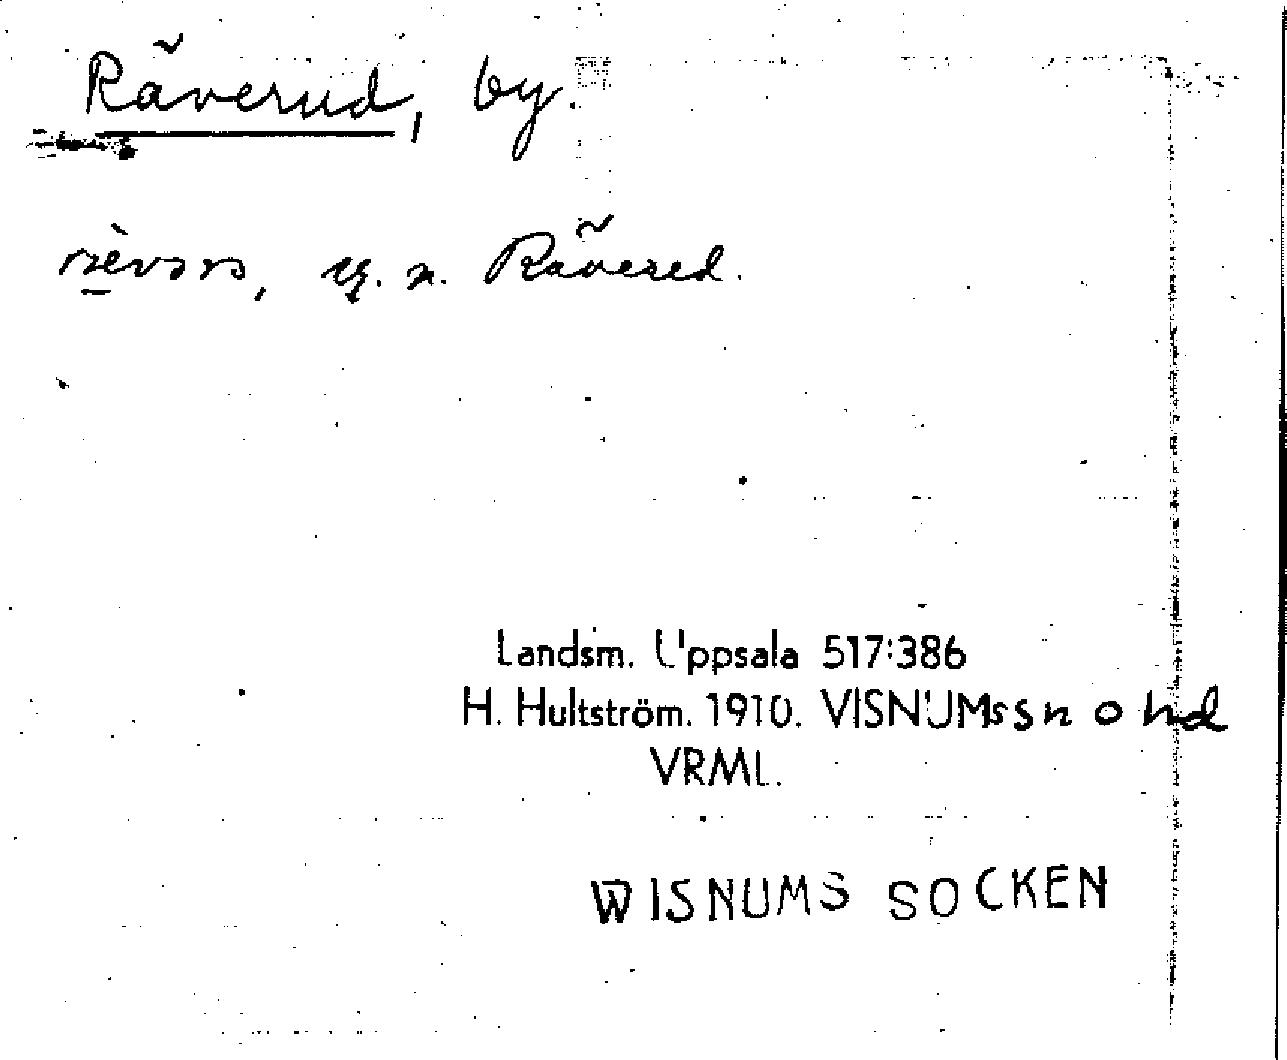 Räverud, by.
rävərə, ɥ. n. Rävered.
Landsm. Uppsala 517:386
H. Hultström. 1910. VISNUMs sn o hd
VRML.
WISNUMS SOCKEN